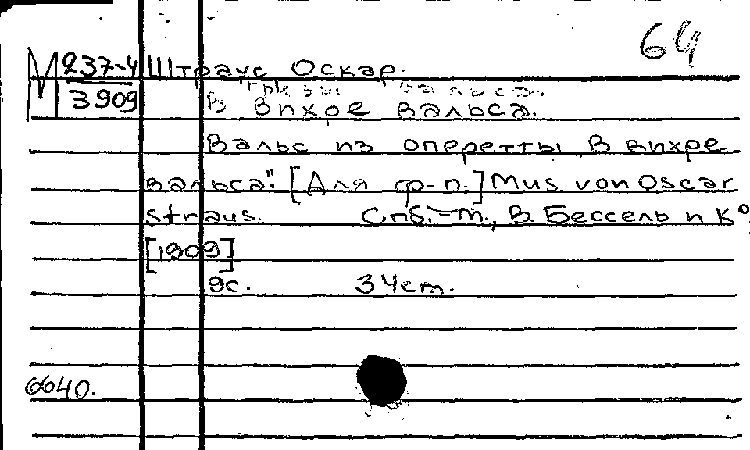 64
М 237-4 Штраус Оскар.
3909 В вихре вальса.
Вальс из оперетты „В вихре
вальса". [Для ф-п.] Mus. von Oscar
Straus. Спб.-М., В. Бессель и К°
[1909]
9с. 34см.
6640.